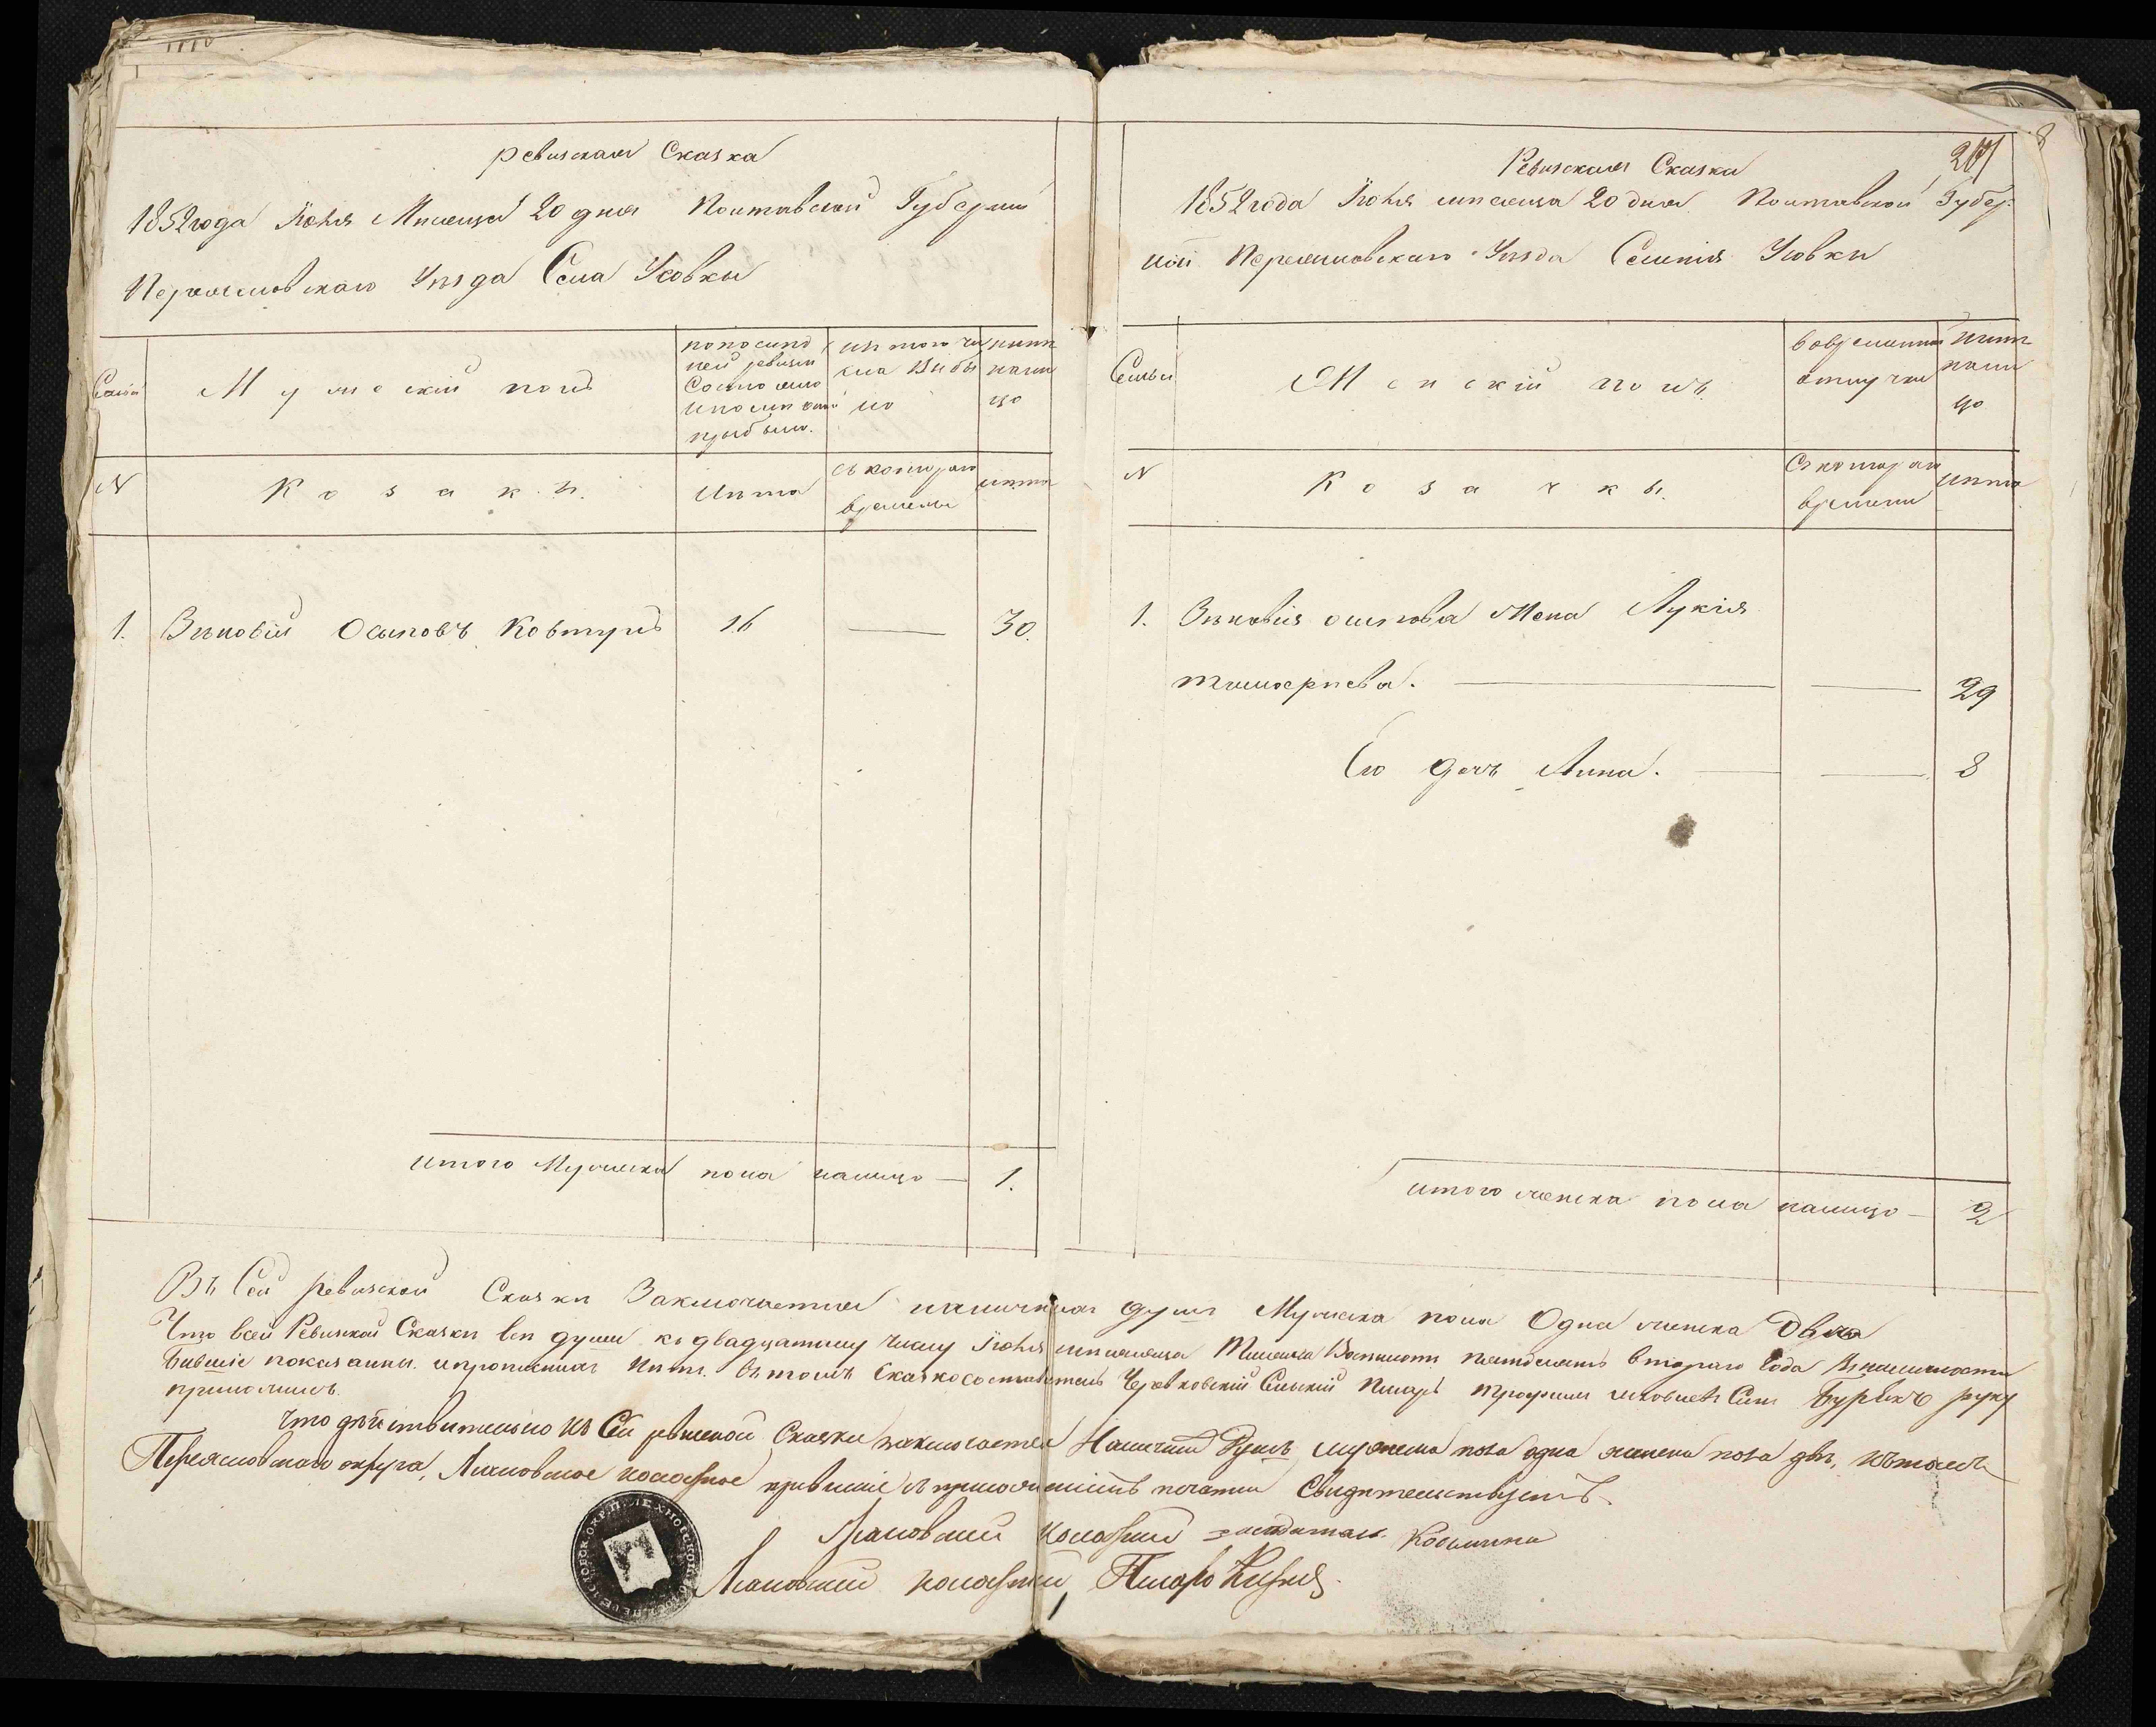 ревизская Сказка
1852 года Июня Мисяца 20 дня Полтавской Губерний
Переяславскаго Уезда Села Усовки
Семьи
Мужеский полъ
по последней ревизии Состояло и после оной прыбыло.
ис того числа Выбыло
ныне на лицо
N
Козаки.
Лета
съ котораго времены
лета
1. Зиновий Осыповъ Ковтунъ 16 — 30.
итого Мужеска пола налицо — 1.
Ревизская Сказка
1852 года Июня мисяца 20 дня Полтавской Губер-
ний Переяславскаго Уезда Селения Усовки
Семьи
Женский полъ.
Во временной отлучки
ныне налицо
N
Козачкы.
Съ котораго времени
лета
1. Зиновия осипова Жена Лукия
тимоериева. — — 29
Его дочъ Анна. — — 8
итого женска пола налицо — 2
Въ Сей ревизской Сказки Заключается наличных душъ Мужеска пола Одна женска Две
Что в сей Ревизкой Сказки вси души къ двадцатому числу Июня мисяца Тисяча Восимсотъ пятдесятъ второго Года В наличности
бывшие показанны. и пропысных нитъ. Въ томъ Сказкосоставитель Сельский Писарь Трофим Син Бурикъ руку
приложилъ.
Что действительно въ Сей ревизской Сказки заключается Наличний Душъ мужеска пола одна женска пола две, въ томъ
Переяславскаго округа, волосное правление съ приложениемъ печати Свидетельствуетъ.
волосний
волосний Писарь